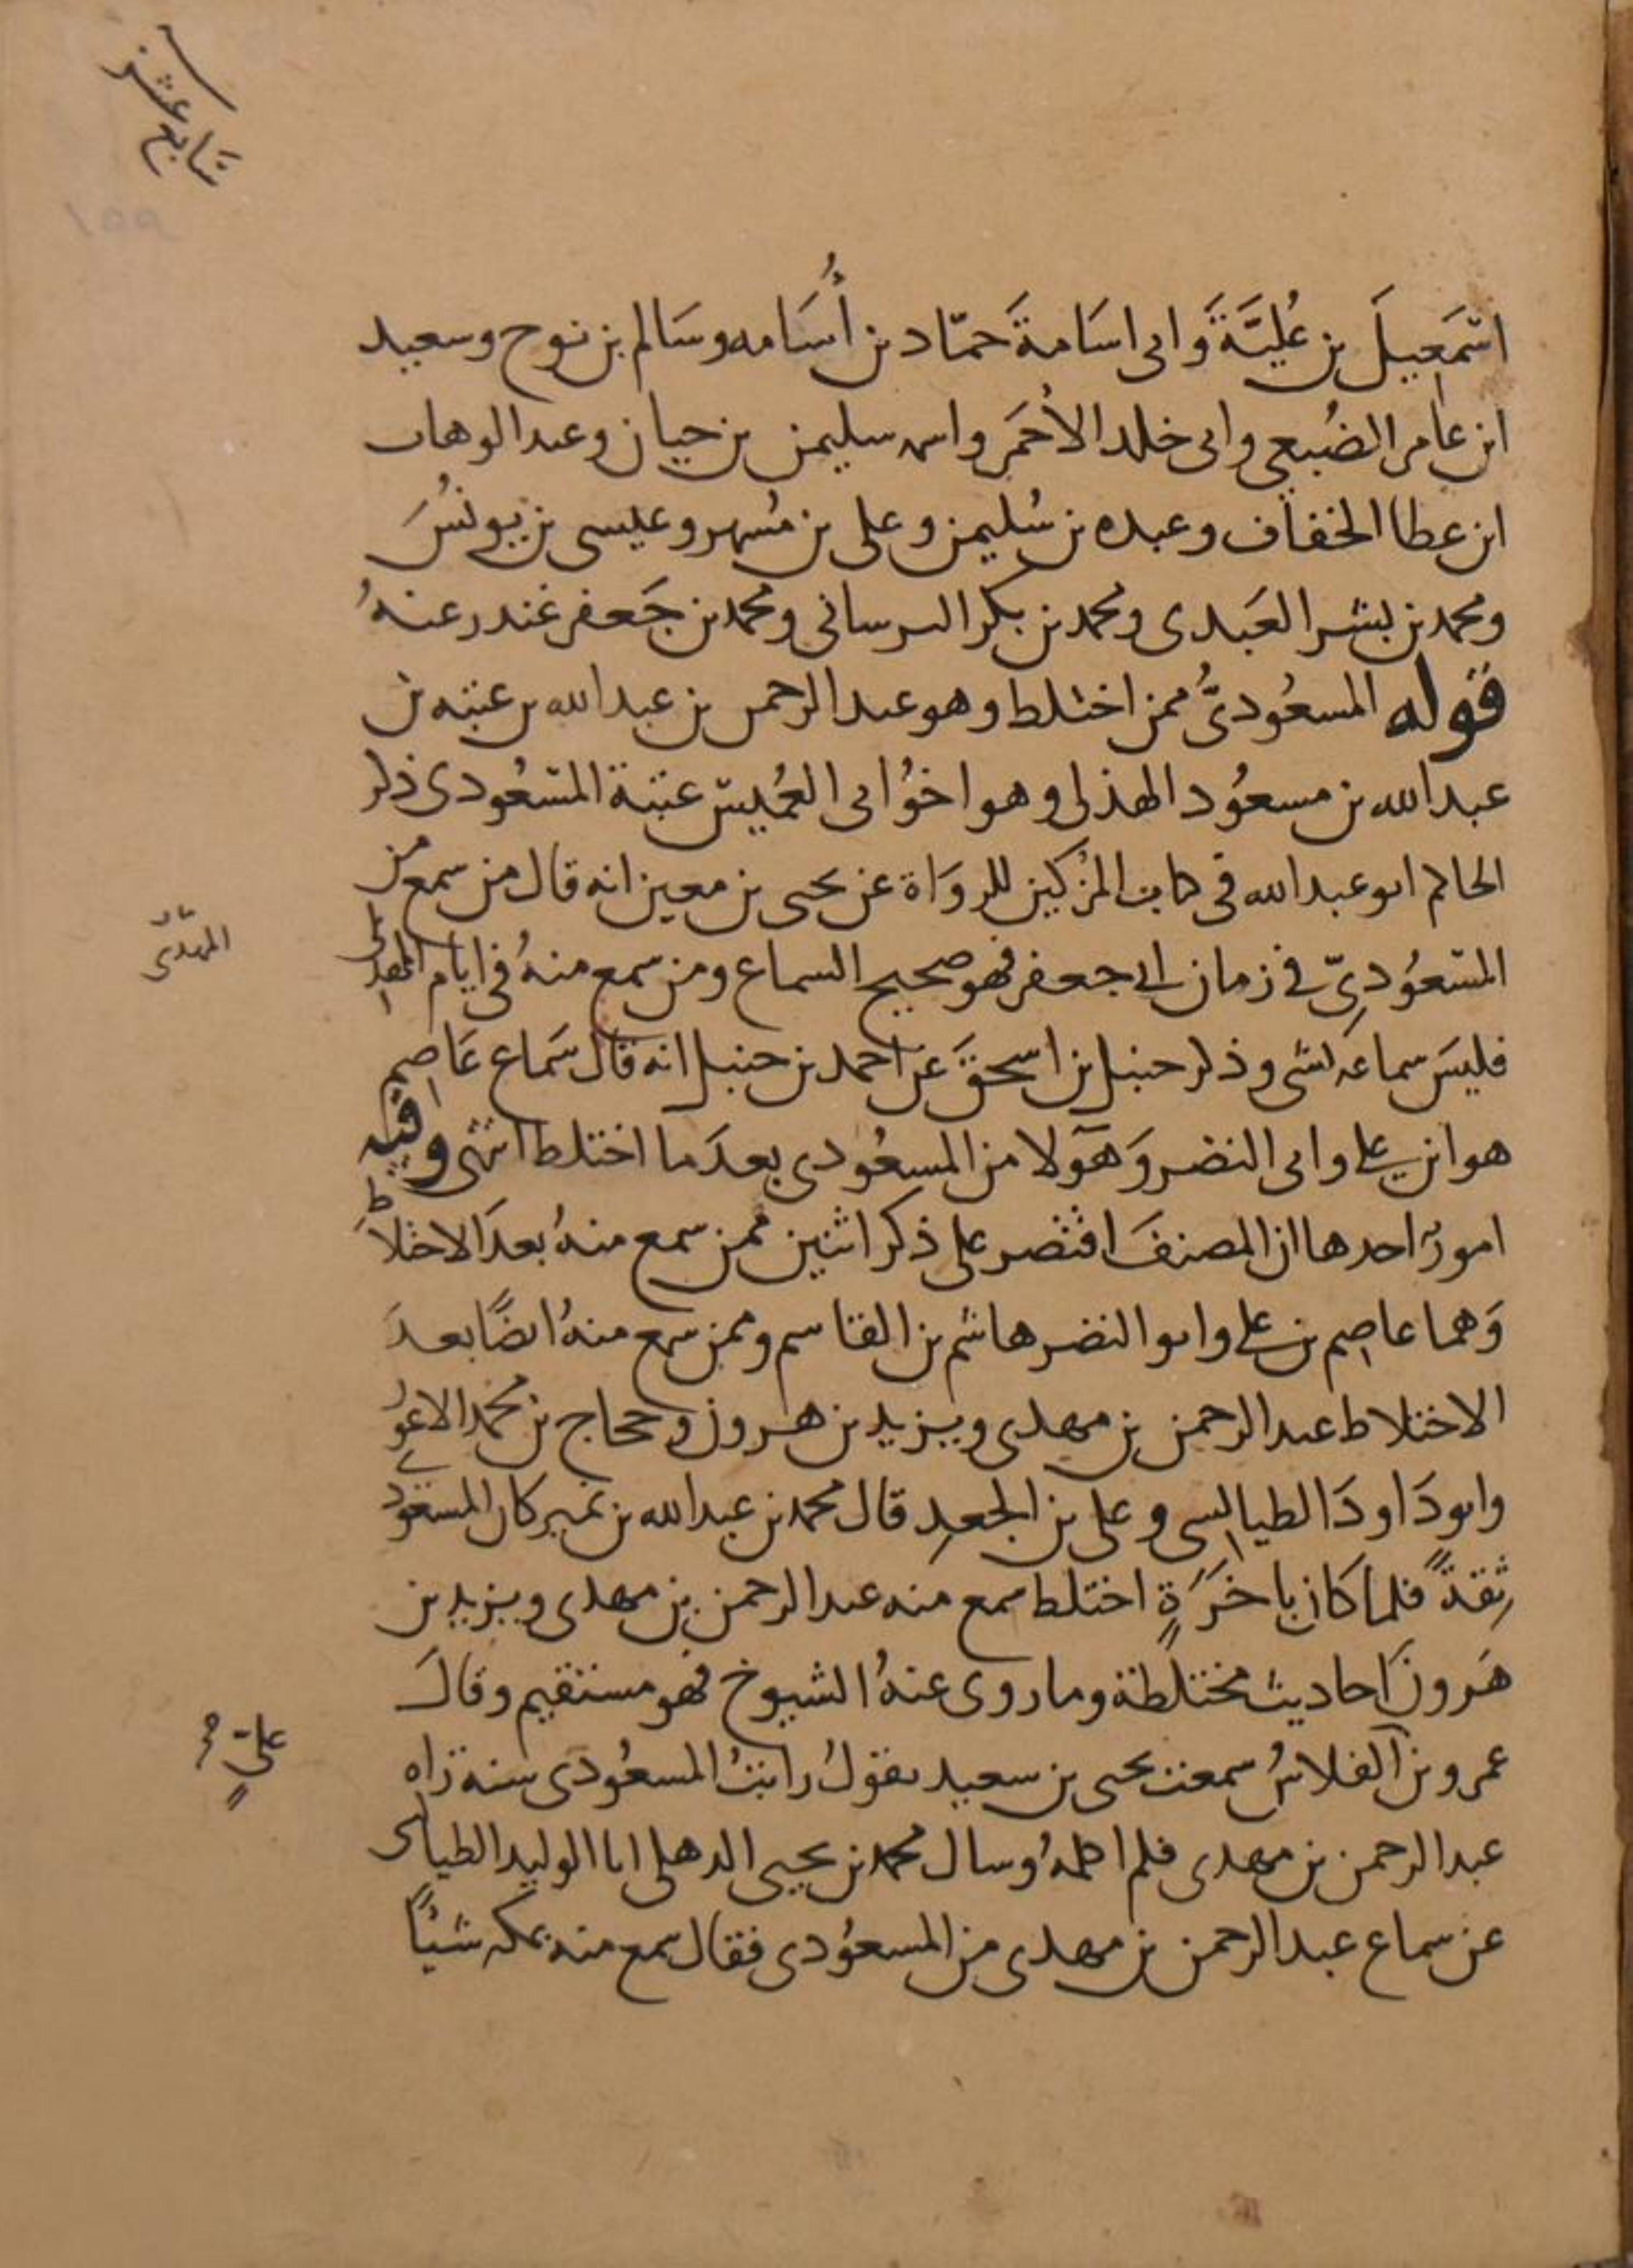 سَابع عشر
١٥٩
اسْمَعيلَ بن عُليَّةَ وَابى اسَامةَ حمّاد بن أُسَامه وسَالم بن نوح وسعيد
ابن عامر الضُبعى وابى خلد الأحمَر واسمه سليمن بن حيان وعبد الوهاب
ابن عطا الخفاف وعبده بن سُليمن وعلى بن مُسهر وعيسى بن يونسُ
ومحمد بن بشر العَبدى ومحمد بن بكر البرسانى ومحمد بن جَعفر غندر عنهُ
قوله المسعُودىُّ ممن اختلط وهو عبد الرحمن بن عبد الله بن عتبه بن
عبد الله بن مسعُود الهذلى وهو اخوُ ابى العُميس عتبة المسْعُودى ذكر
الحاكم ابو عبد الله فى كتاب المُزكين للروَاة عن يحيى بن معين انه قال من سمع من
المسْعُودىّ فى زمان ابى جعفر فهو صحيح السماع ومن سمع منهُ فى ايام المهدى
المهدّى
فليسَ سماعَه بشى وذكر حنبل بن اسحقَ عن احمد بن حنبل انه قال سَماع عَاصم
هو ابن على وابى النضر وَهَولا من المسعُودى بعدَ ما اختلط انتهى وفيه
امورٌ احدها ان المصنفَ اقتصر على ذكر اثنين ممن سمع منهُ بعدَ الاختلاطِ
وَهما عاصم بن على وابو النضر هاشم بن القاسم وممن سمع منهُ ايضًا بعدَ
الاختلاط عبد الرحمن بن مهدى ويزيد بن هرون وحجاج بن محمد الاعوُر
وابو دَاودَ الطيالسى وعلى بن الجعدِ قال محمد بن عبد الله بن نمير كان المسعُودى
ثِقةً فلما كان باخَرَةٍ اختلط سمع منه عبد الرحمن بن مهدى ويزيد بن
هَرونَ احاديث مختلطةً وما روى عنهُ الشيوخ فهو مستقيم وقالَ
عمرو بن الفلاسُ سمعت يحيى بن سعيد يقولُ رايتُ المسعُودى سنة رَاه
علىّ
عبد الرحمن بن مهدى فلم اكلمهُ وسال محمد بن يحيى الذهلى ابا الوليد الطيالسى
عن سماع عبد الرحمن بن مهدى من المسعُودى فقال سمع منه بمكه شيًا